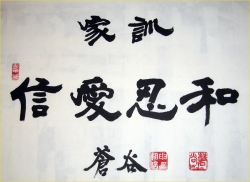 家訓
信愛忍和
蒼谷